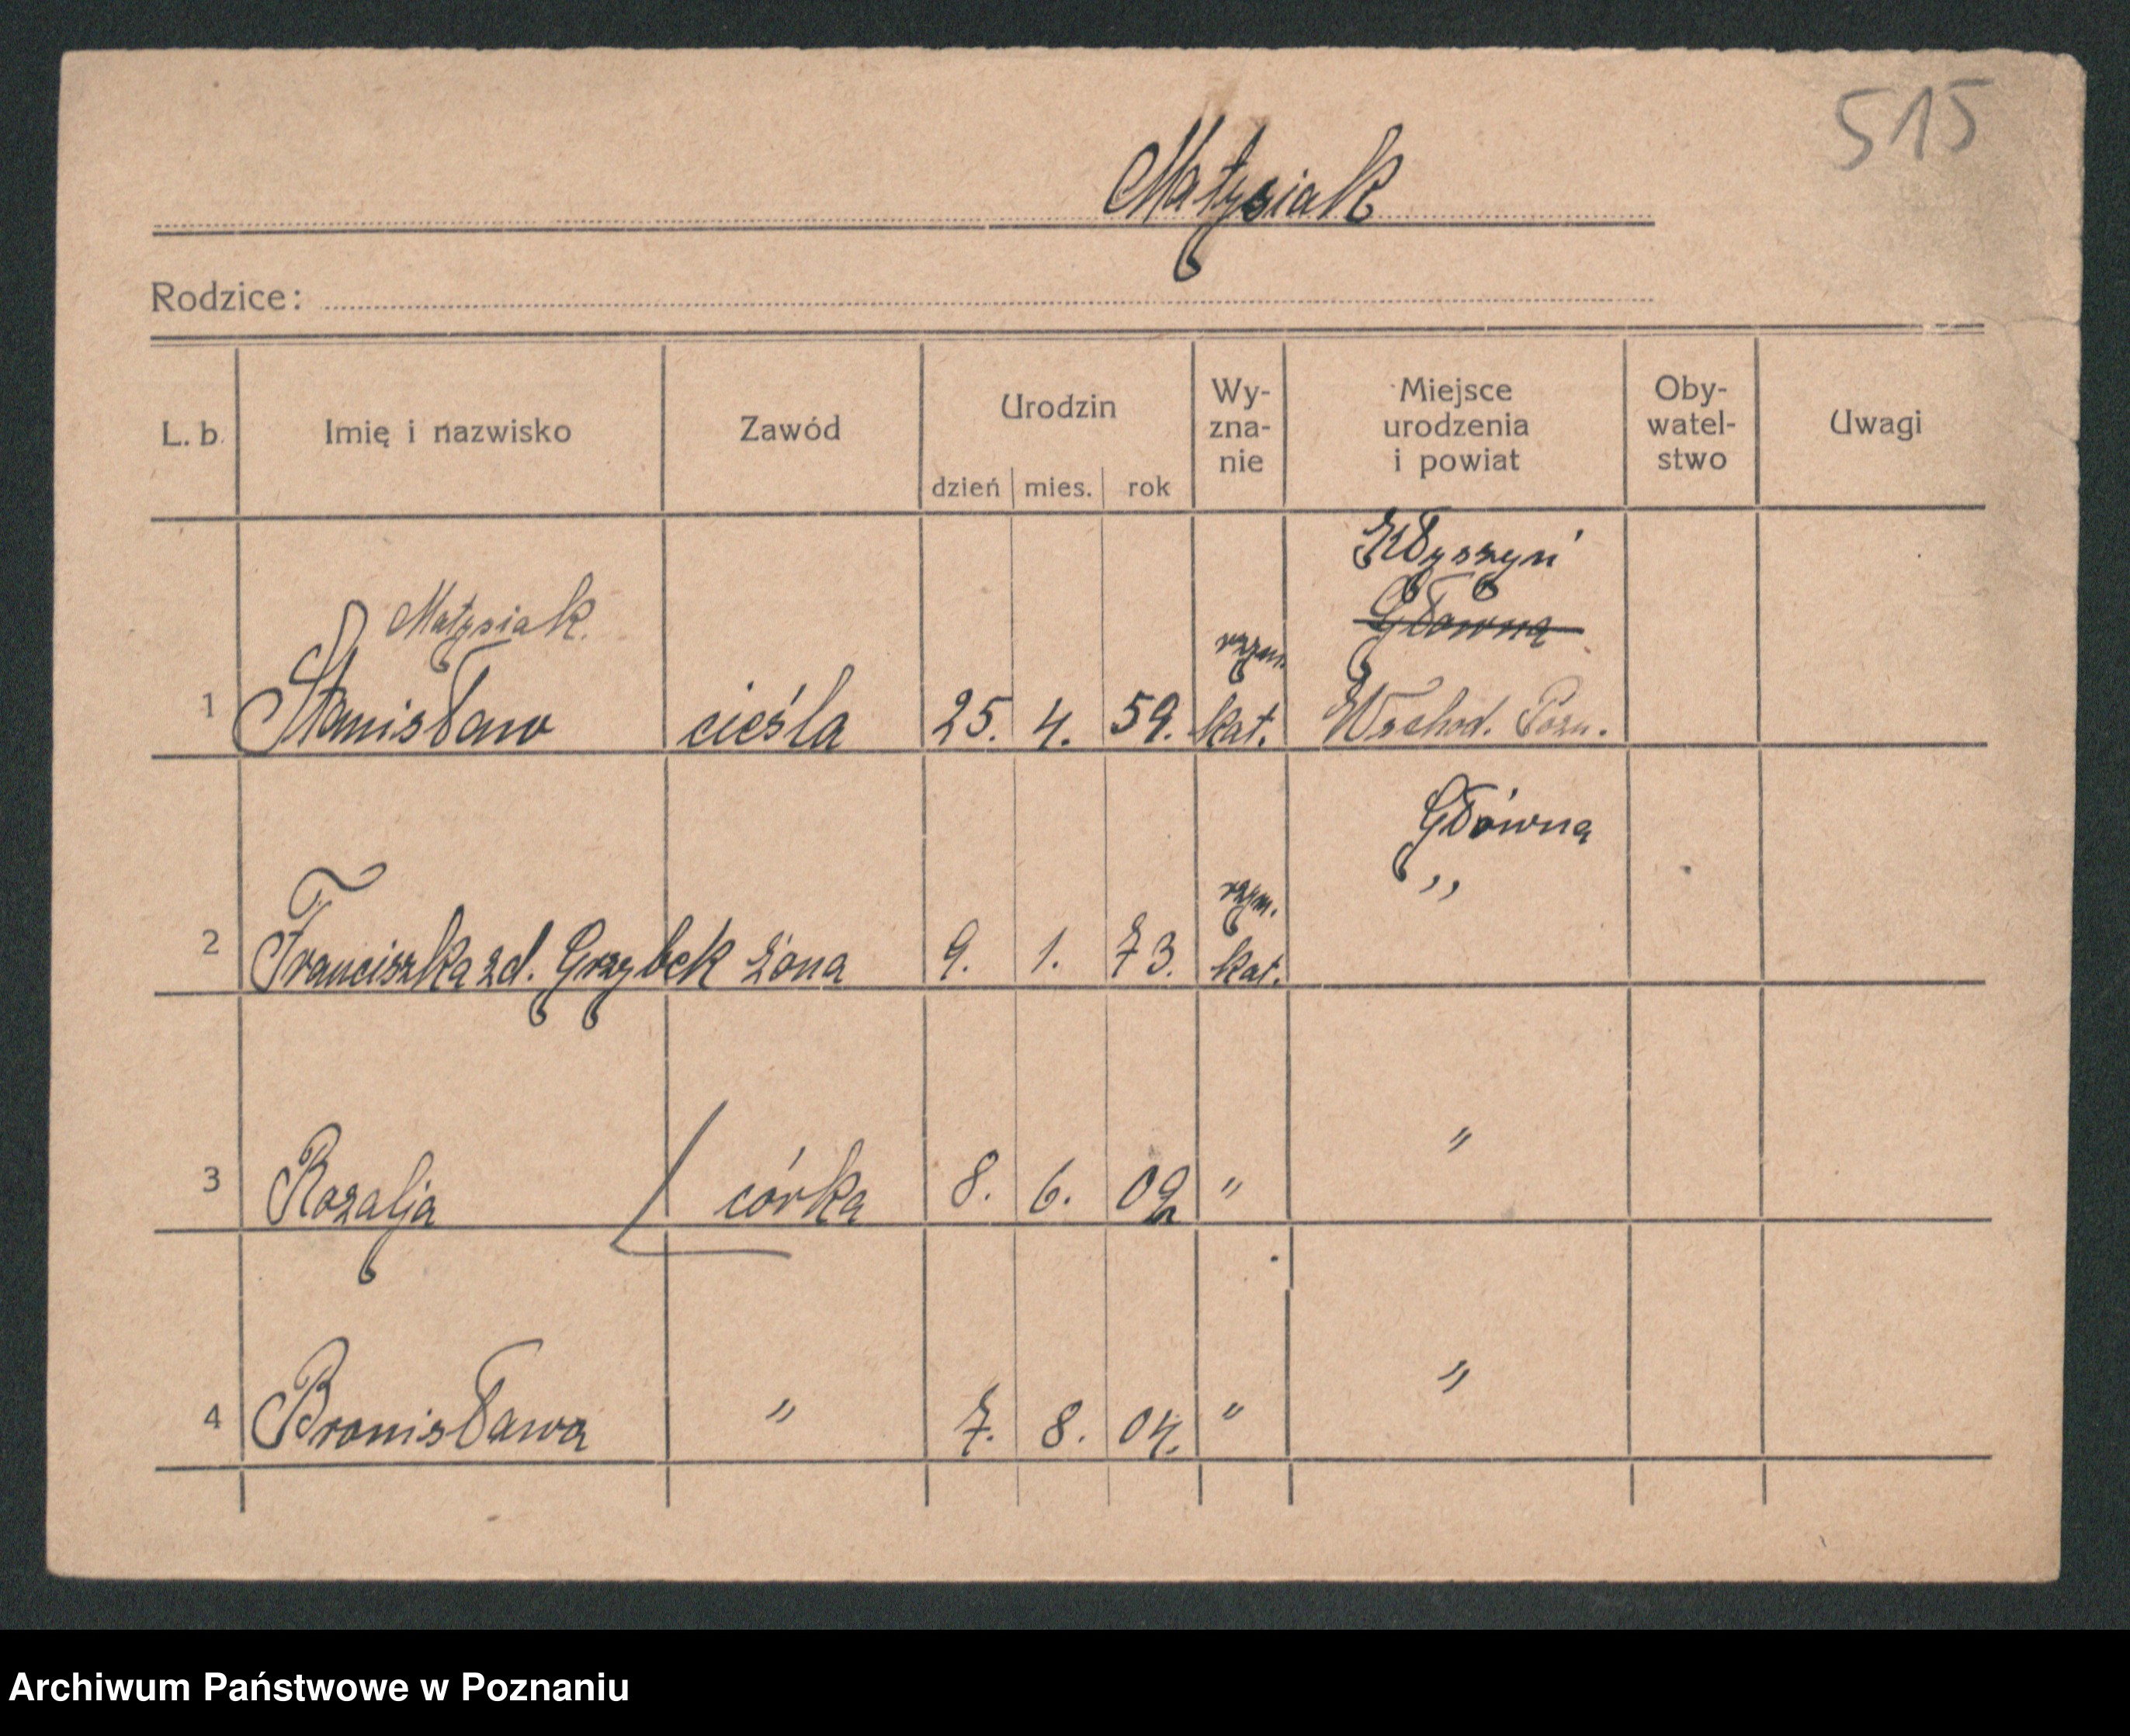 515
Matysiak
Rodzice:
L. b. Imię i nazwisko Zawód Urodzin dzień mies. rok Wy-zna-nie Miejsce urodzenia i powiat Oby-watel-stwo Uwagi
Główna
Matysiak.
1 Stanisław cieśla 25. 4. 59. rzym. kat. Wschod. Pozn.
Główna
2 Franciszka zd. Grzybek żona 9. 1. 73. rzym. kat. "
3 Rozalja córka 8. 6. 09 " "
4 Bronisława " 7. 8. 04. " "
Archiwum Państwowe w Poznaniu